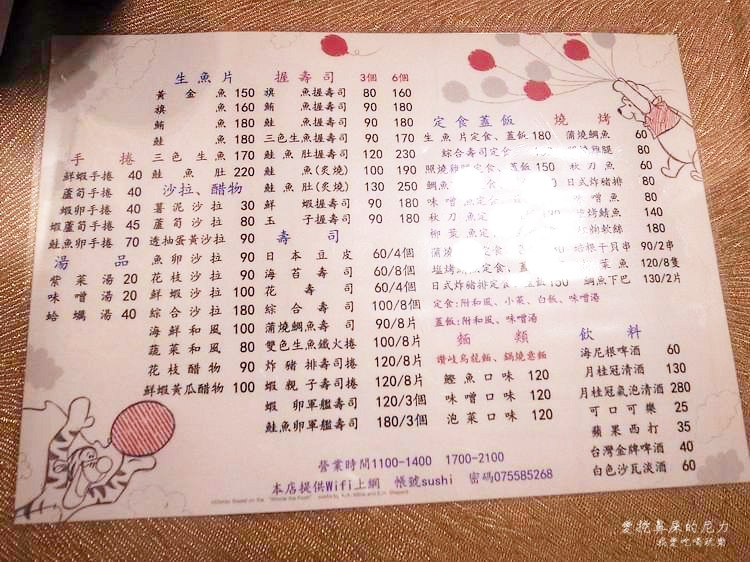 生魚片
黃金魚 150
旗魚 160
鮪魚 180
鮭魚 180
三色生魚 170
鮭魚肚 220
手捲
鮮蝦手捲 40
蘆筍手捲 40
蝦卵手捲 40
蝦蘆手捲 45
鮭魚卵手捲 70
湯品
紫菜湯 20
味噌湯 20
蛤蠣湯 40
沙拉、醋物
薯泥沙拉 30
蘆筍沙拉 80
透抽蛋黃沙拉 90
魚卵沙拉 90
花枝沙拉 90
鮮蝦沙拉 100
綜合沙拉 180
海鮮和風 100
蔬菜和風 80
花枝醋物 90
鮮蝦黃瓜醋物 100
握壽司 3個 6個
旗魚握壽司 80 160
鮪魚握壽司 90 180
鮭魚握壽司 90 180
三色生魚握壽司 90 170
鮭魚肚握壽司 120 230
鮭魚(炙燒) 100 190
鮭魚肚(炙燒) 130 250
鮮蝦握壽司 90 180
玉子握壽司 90 180
壽司
日本豆皮 60/4個
海苔壽司 60/8個
花壽司 60/4個
綜合壽司 100/8個
蒲燒鯛魚壽司 90/8片
雙色生魚鐵火捲 100/8片
炸豬排壽司捲 120/8片
蝦親子壽司捲 120/8片
蝦卵軍艦壽司 120/3個
鮭魚卵軍艦壽司 180/3個
定食蓋飯
生魚片定食、蓋飯 180
綜合壽司定食 170
照燒雞腿定食、蓋飯 150
鯛魚
味噌魚定食
秋刀魚定
柳葉魚定
蒲燒
塩烤
日式炸豬排定食、蓋飯 150
定食:附和風、小菜、白飯、味噌湯
蓋飯:附和風、味噌湯
燒烤
蒲燒鯛魚 60
雞腿 60
秋刀魚 60
日式炸豬排 80
味噌魚 80
烤鯖魚 140
軟絲 180
培根干貝串 90/2串
魚 120/8隻
鯛魚下巴 130/2片
麵類
讚岐烏龍麵、鍋燒意麵
鰹魚口味 120
味噌口味 120
泡菜口味 120
飲料
海尼根啤酒 60
月桂冠清酒 130
月桂冠氣泡清酒 280
可口可樂 25
蘋果西打 35
台灣金牌啤酒 40
白色沙瓦淡酒 60
營業時間1100-1400 1700-2100
本店提供Wifi上網 帳號sushi 密碼075585268
愛挖鼻屎的尼力